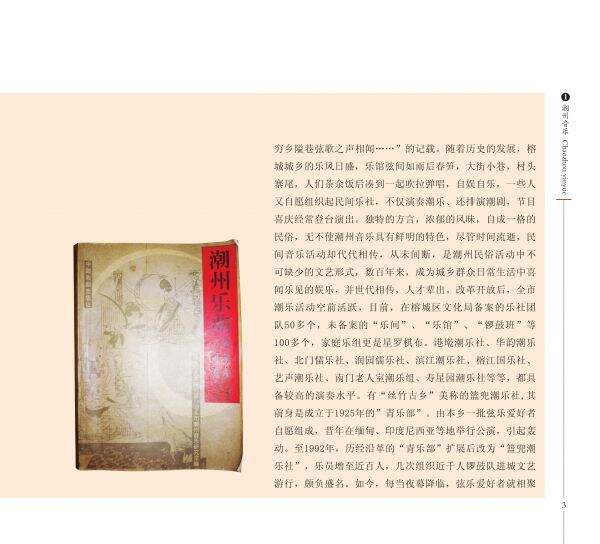 ❶
潮州音乐 Chaozhou yinyue
穷乡隘巷弦歌之声相闻……”的记载。随着历史的发展，榕
城城乡的乐风日盛，乐馆弦间如雨后春笋，大街小巷，村头
寨尾，人们茶余饭后凑到一起吹拉弹唱，自娱自乐，一些人
又自愿组织起民间乐社，不仅演奏潮乐、还排演潮剧，节目
喜庆经常登台演出。独特的方言，浓郁的风味，自成一格的
民俗，无不使潮州音乐具有鲜明的特色，尽管时间流逝，民
间音乐活动却代代相传，从未间断，是潮州民俗活动中不
可缺少的文艺形式，数百年来，成为城乡群众日常生活中喜
闻乐见的娱乐，并世代相传，人才辈出。改革开放后，全市
潮乐活动空前活跃，目前，在榕城区文化局备案的乐社团
队50多个，未备案的“乐间”、“乐馆”、“锣鼓班”等
100多个，家庭乐组更是星罗棋布。港墘潮乐社、华韵潮乐
社、北门儒乐社、润园儒乐社、滨江潮乐社、榕江国乐社、
艺声潮乐社、南门老人室潮乐组、寿星园潮乐社等等，都具
备较高的演奏水平。有“丝竹古乡”美称的篮兜潮乐社,其
前身是成立于1925年的”青乐部”。由本乡一批弦乐爱好者
自愿组成，昔年在缅甸、印度尼西亚等地举行公演，引起轰
动。至1992年，历经沿革的“青乐部”扩展后改为“篮兜潮
乐社”，乐员增至近百人，几次组织近千人锣鼓队进城文艺
游行，颇负盛名。如今，每当夜幕降临，弦乐爱好者就相聚
潮州乐
中国戏剧出版社
3